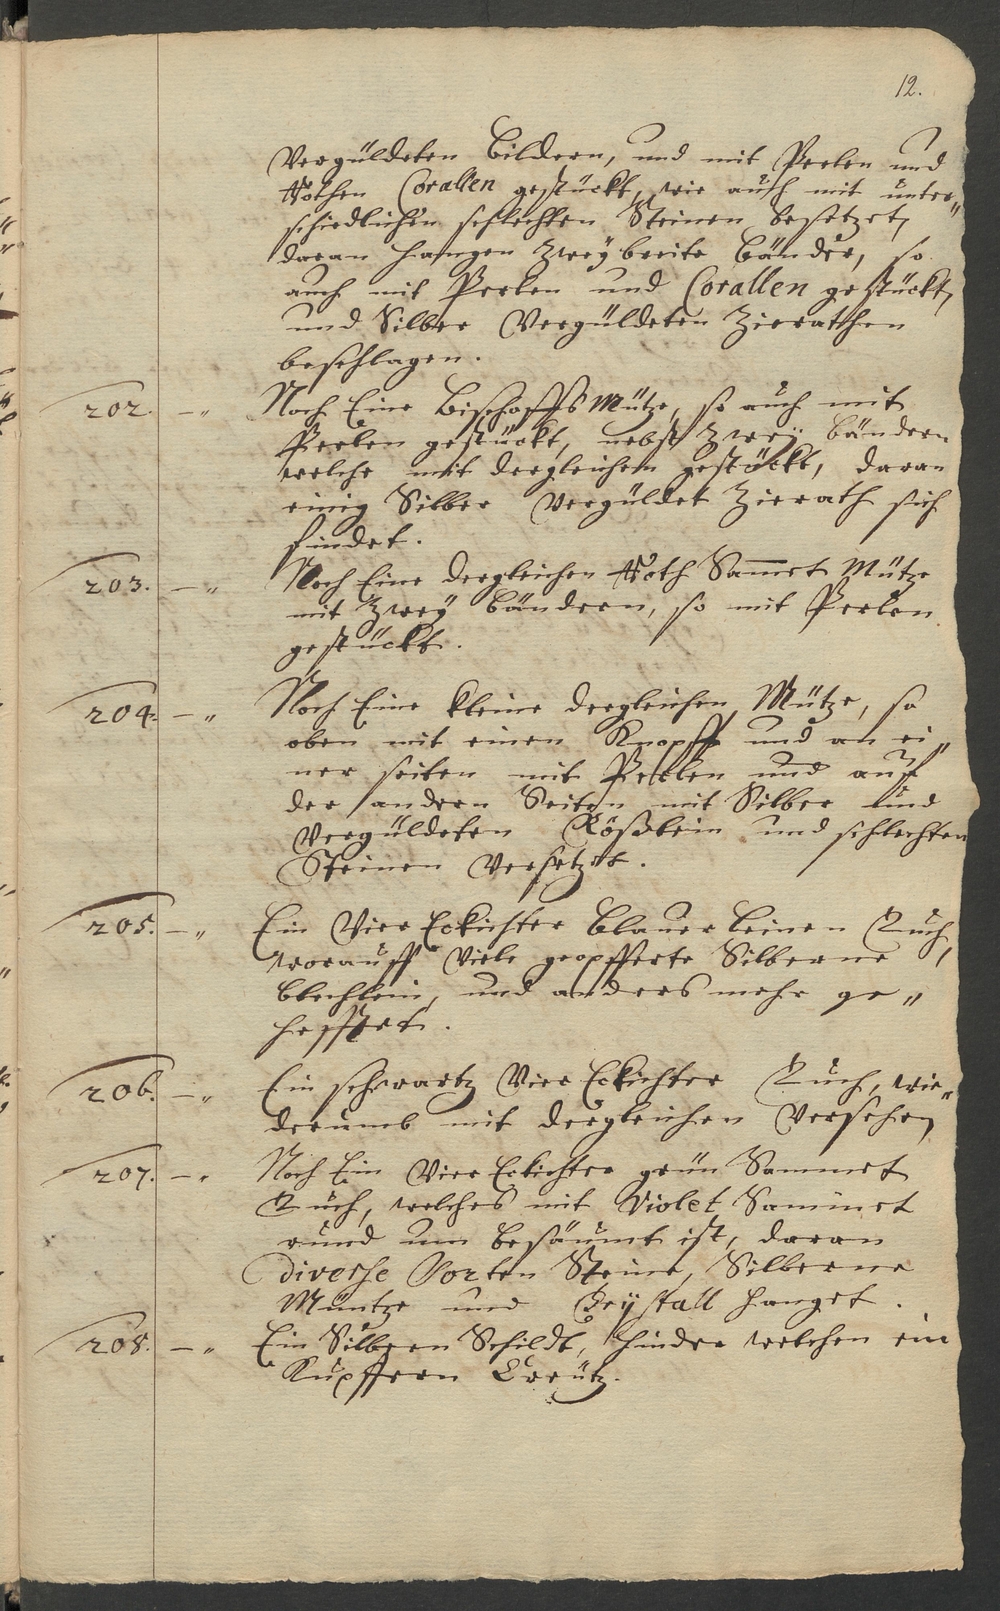 12.
Vergüldeten Bildern, und mit Perlen und
Rothen Corallen gestückt, wie auch mit unter„
schiedlichen schlechten Steinen besetzet,
daran hangen Zwey breite Bänder, so
auch mit Perlen und Corallen gestückt,
und Silber Vergüldeten Zierathen
beschlagen.
202. — „ Noch Eine Bischoffs Mütze, so auch mit
Perlen gestückt, nebst Zwey Bändern
welche mit dergleichen gestückt, daran
einig Silber Vergüldet Zierath sich
findet.
203. — „ Noch Eine dergleichen Roth Sam̄et Mütze
mit Zwey Bändern, so mit Perlen
gestückt.
204. — „ Noch Eine kleine dergleichen Mütze, so
oben mit einen Knopff und an ei„
ner seiten mit Perlen und auf
der andern Seiten mit Silber und
Vergüldeten Rößlein und schlechten
Steinen Versetzet.
205. — „ Ein Vier Eckichter blauer leinen Tuch,
worauff Viele geopfferte Silberne
blechlein, und anders mehr ge„
hefftet.
206. — „ Ein schwartz Vier Eckichter Tuch, wie„
derumb mit dergleichen Versehen,
207. — „ Noch Ein Vier Eckichter grün Sammet
Tuch, welches mit Violet Sammet
rund um besäumt ist, daran
diverse Sorten Steine, Silberne
Müntze und Crystall hanget.
208. — „ Ein Silbern Schildt, hinder welchen ein
Kupffern Creütz.